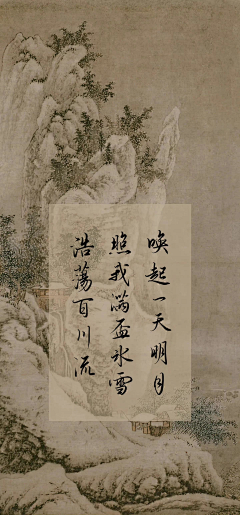 唤起一天明月
照我满盃氷雪
浩荡百川流